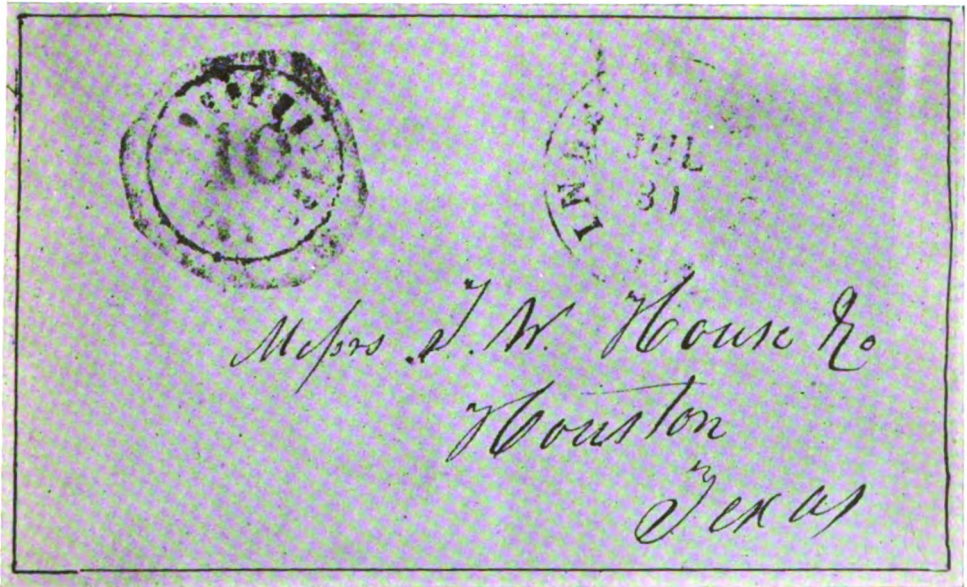 10
JUL
31
Messrs T. W. House & Co
Houston
Texas